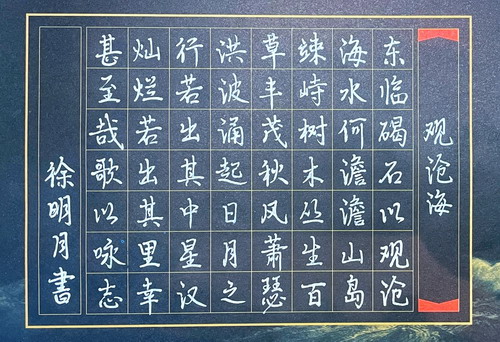 观沧海
东临碣石以观沧
海水何澹澹山岛
竦峙树木丛生百
草丰茂秋风萧瑟
洪波涌起日月之
行若出其中星汉
灿烂若出其里幸
甚至哉歌以咏志
徐明月書